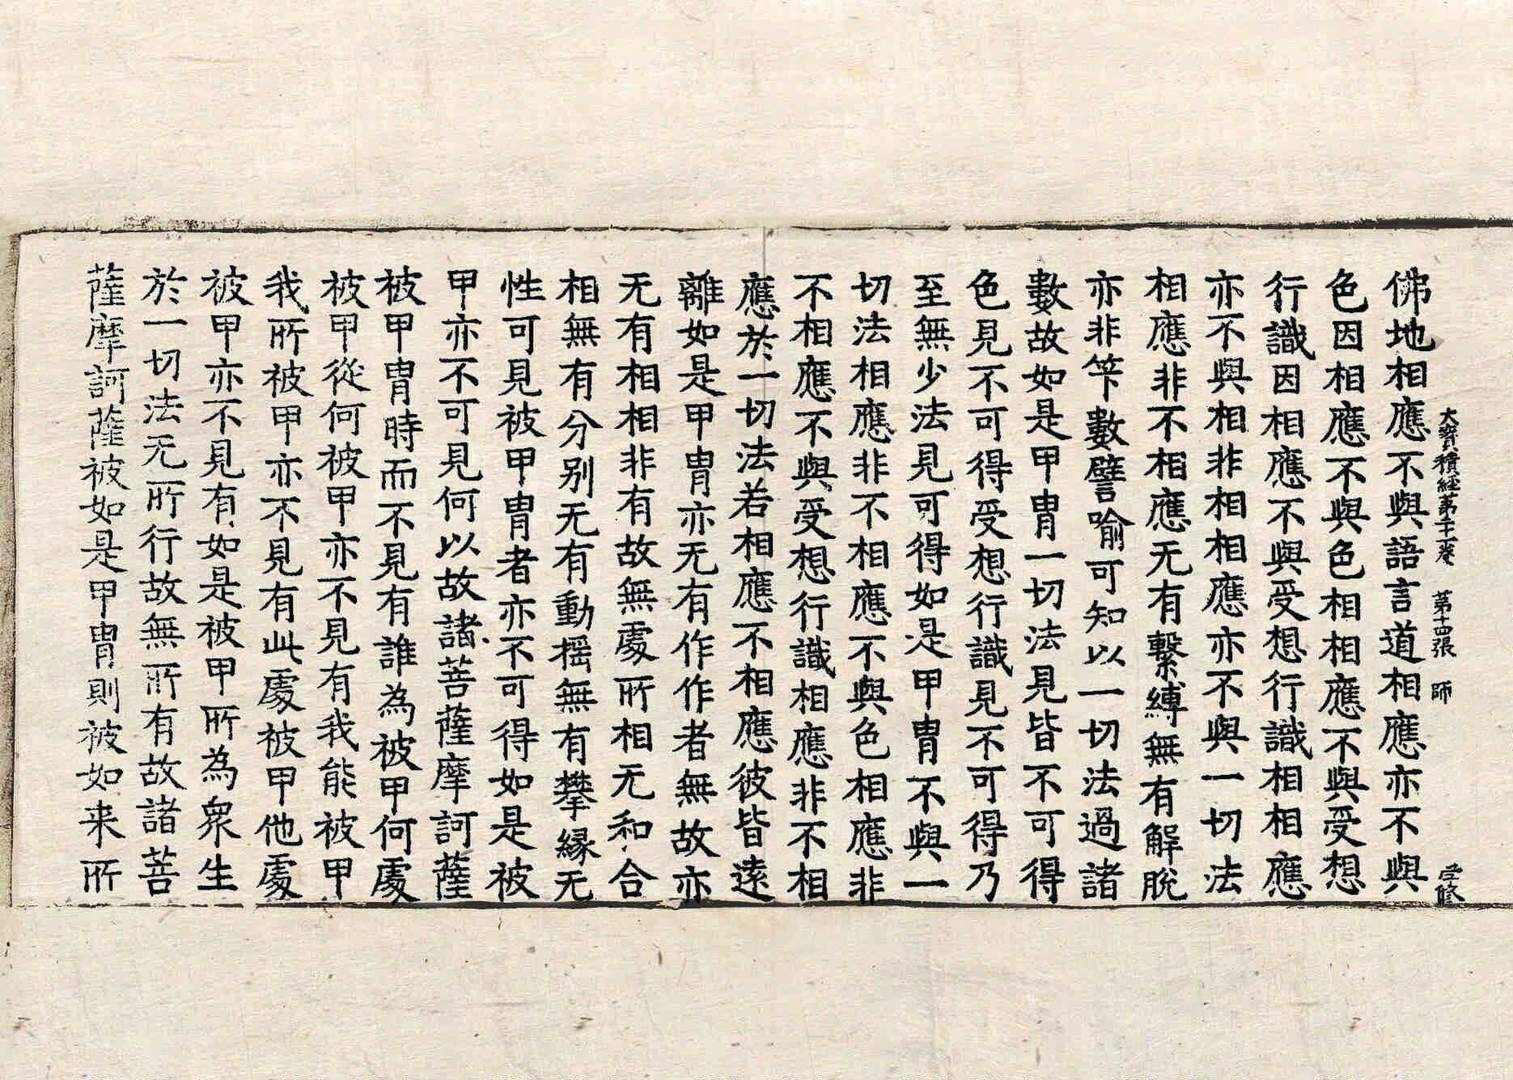 大寶積經第二十一卷 第十四張 師
佛地相應不與語言道相應亦不與
色因相應不與色相相應不與受想
行識因相應不與受想行識相相應
亦不與相非相相應亦不與一切法
相應非不相應无有繫縛無有解脫
亦非笇數譬喻可知以一切法過諸
數故如是甲冑一切法見皆不可得
色見不可得受想行識見不可得乃
至無少法見可得如是甲冑不與一
切法相應非不相應不與色相應非
不相應不與受想行識相應非不相
應於一切法若相應不相應彼皆遠
離如是甲冑亦无有作作者無故亦
无有相相非有故無處所相无和合
相無有分别无有動搖無有攀緣无
性可見被甲冑者亦不可得如是被
甲亦不可見何以故諸菩薩摩訶薩
被甲冑時而不見有誰為被甲何處
被甲從何被甲亦不見有我能被甲
我所被甲亦不見有此處被甲他處
被甲亦不見有如是被甲所為衆生
於一切法无所行故無所有故諸菩
薩摩訶薩被如是甲冑則被如来所